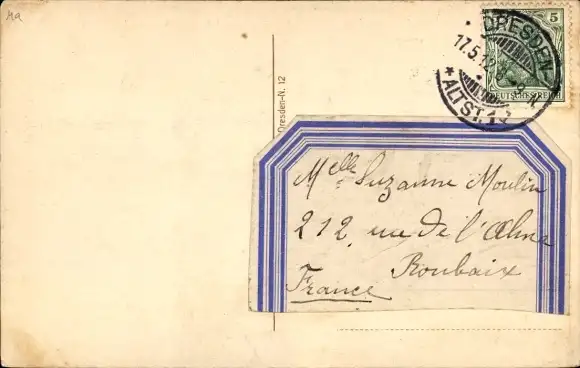 Ma
5
DRESDEN
17.5.12
* ALTST. 1
DEUTSCHES REICH
Dresden-N. 12
Melle Suzanne Moulin
212, rue de l'Alma
Roubaix
France